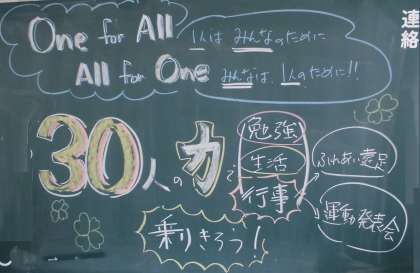 One for All 1人は みんなのために
All for One みんなは、1人のために!!
連絡
30人の力で
勉強
生活
行事
ふれあい遠足
運動発表会
乗りきろう!